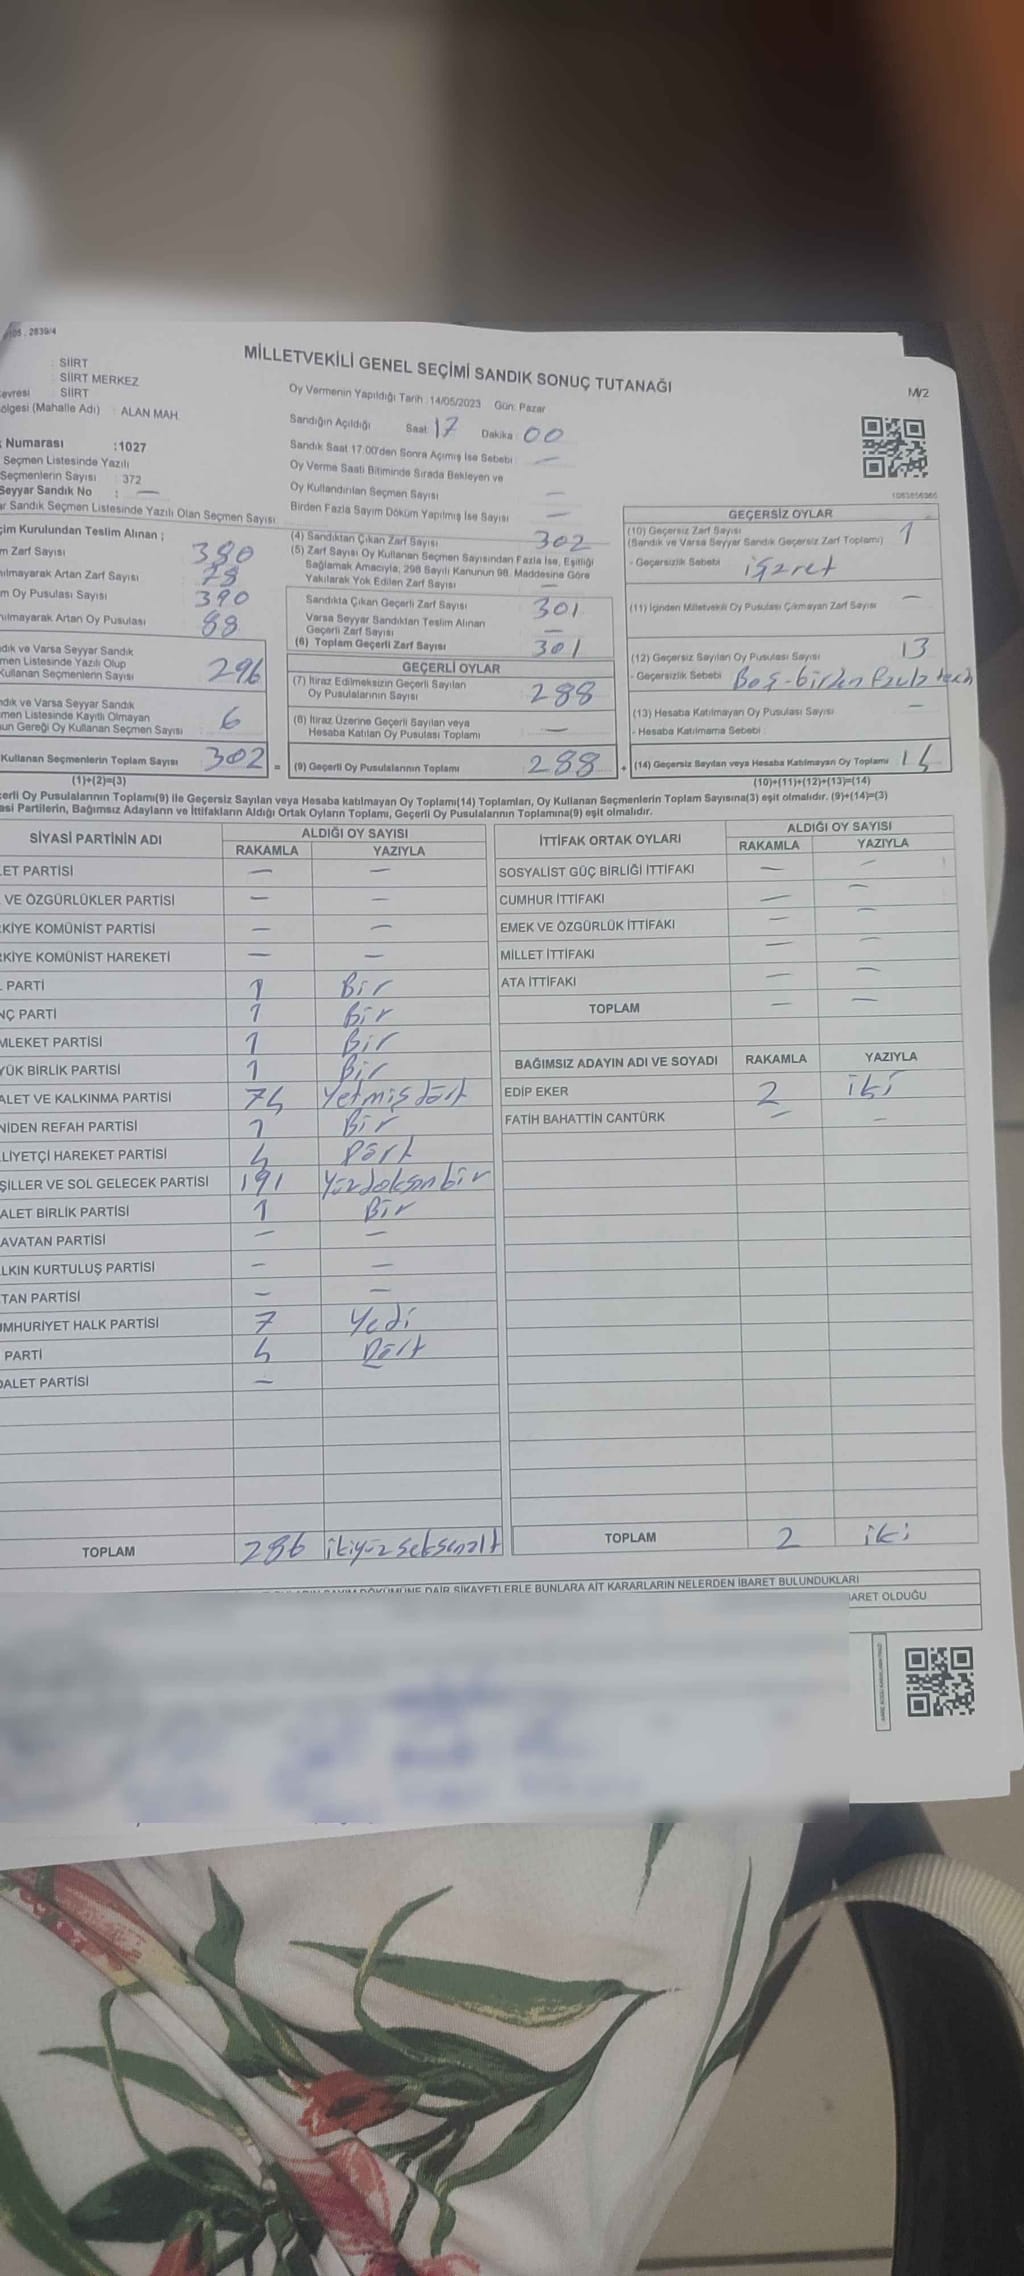 MİLLETVEKİLİ GENEL SEÇİMİ SANDIK SONUÇ TUTANAĞI
MV2
: SİİRT
: SİİRT MERKEZ
: SİİRT
(Mahalle Adı) : ALAN MAH.
Numarası :1027
Seçmen Listesinde Yazılı
Seçmenlerin Sayısı : 372
Seyyar Sandık No : —
Sandık Seçmen Listesinde Yazılı Olan Seçmen Sayısı
Oy Vermenin Yapıldığı Tarih :14/05/2023 Gün: Pazar
Sandığın Açıldığı Saat: 17 Dakika : 00
Sandık Saat 17:00'den Sonra Açımış İse Sebebi : —
Oy Verme Saati Bitiminde Sırada Bekleyen ve
Oy Kullandırılan Seçmen Sayısı —
Birden Fazla Sayım Döküm Yapılmış İse Sayısı —
Kurulundan Teslim Alınan ;
Zarf Sayısı 380
Artan Zarf Sayısı 78
Oy Pusulası Sayısı 390
Artan Oy Pusulası 88
ve Varsa Seyyar Sandık
Listesinde Yazılı Olup
Kullanan Seçmenlerin Sayısı 296
ve Varsa Seyyar Sandık
Listesinde Kayıtlı Olmayan
Gereği Oy Kullanan Seçmen Sayısı 6
Kullanan Seçmenlerin Toplam Sayısı 302 =
(1)+(2)=(3)
(4) Sandıktan Çıkan Zarf Sayısı 302
(5) Zarf Sayısı Oy Kullanan Seçmen Sayısından Fazla İse, Eşitliği
Sağlamak Amacıyla, 298 Sayılı Kanunun 98. Maddesine Göre
Yakılarak Yok Edilen Zarf Sayısı —
Sandıkta Çıkan Geçerli Zarf Sayısı 301
Varsa Seyyar Sandıktan Teslim Alınan
Geçerli Zarf Sayısı —
(6) Toplam Geçerli Zarf Sayısı 301
GEÇERLİ OYLAR
(7) İtiraz Edilmeksizin Geçerli Sayılan
Oy Pusulalarının Sayısı 288
(8) İtiraz Üzerine Geçerli Sayılan veya
Hesaba Katılan Oy Pusulası Toplamı —
(9) Geçerli Oy Pusulalarının Toplamı 288 +
GEÇERSİZ OYLAR
(10) Geçersiz Zarf Sayısı 1
(Sandık ve Varsa Seyyar Sandık Geçersiz Zarf Toplamı)
- Geçersizlik Sebebi işaret
(11) İçinden Milletvekili Oy Pusulası Çıkmayan Zarf Sayısı —
(12) Geçersiz Sayılan Oy Pusulası Sayısı 13
- Geçersizlik Sebebi Boş-birden fazla
(13) Hesaba Katılmayan Oy Pusulası Sayısı —
- Hesaba Katılmama Sebebi :
(14) Geçersiz Sayılan veya Hesaba Katılmayan Oy Toplamı 14
(10)+(11)+(12)+(13)=(14)
Oy Pusulalarının Toplamı(9) ile Geçersiz Sayılan veya Hesaba katılmayan Oy Toplamı(14) Toplamları, Oy Kullanan Seçmenlerin Toplam Sayısına(3) eşit olmalıdır. (9)+(14)=(3)
Partilerin, Bağımsız Adayların ve İttifakların Aldığı Ortak Oyların Toplamı, Geçerli Oy Pusulalarının Toplamına(9) eşit olmalıdır.
SİYASİ PARTİNİN ADI ALDIĞI OY SAYISI
RAKAMLA YAZIYLA
PARTİSİ — —
VE ÖZGÜRLÜKLER PARTİSİ — —
KOMÜNİST PARTİSİ — —
KOMÜNİST HAREKETİ — —
PARTİ 1 Bir
PARTİ 1 Bir
PARTİSİ 1 Bir
BİRLİK PARTİSİ 1 Bir
VE KALKINMA PARTİSİ 74 Yetmiş dört
REFAH PARTİSİ 1 Bir
HAREKET PARTİSİ 4 Dört
VE SOL GELECEK PARTİSİ 191 Yüzdoksanbir
BİRLİK PARTİSİ 1 Bir
PARTİSİ — —
KURTULUŞ PARTİSİ — —
PARTİSİ — —
HALK PARTİSİ 7 Yedi
PARTİ 4 Dört
PARTİSİ —
TOPLAM 286 ikiyüzseksenalt
İTTİFAK ORTAK OYLARI ALDIĞI OY SAYISI
RAKAMLA YAZIYLA
SOSYALİST GÜÇ BİRLİĞİ İTTİFAKI — —
CUMHUR İTTİFAKI — —
EMEK VE ÖZGÜRLÜK İTTİFAKI — —
MİLLET İTTİFAKI — —
ATA İTTİFAKI — —
TOPLAM — —
BAĞIMSIZ ADAYIN ADI VE SOYADI RAKAMLA YAZIYLA
EDİP EKER 2 iki
FATİH BAHATTİN CANTÜRK — —
TOPLAM 2 iki
DÖKÜMÜNE DAİR ŞİKAYETLERLE BUNLARA AİT KARARLARIN NELERDEN İBARET BULUNDUKLARI
OLDUĞU